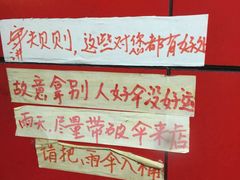 守规则，这些对您都有好处
故意拿别人好伞没好运
雨天，尽量带破伞来店
请把，雨伞入不